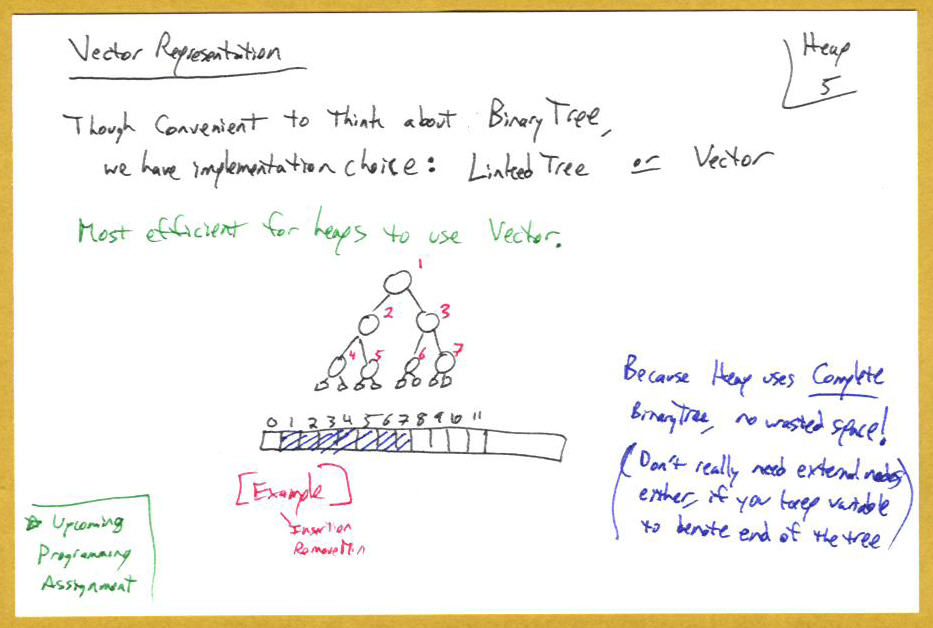 Vector Representation
Heap
5
Though Convenient to think about BinaryTree,
we have implementation choice: LinkedTree or Vector
Most efficient for heaps to use Vector.
1
2 3
4 5 6 7
0 1 2 3 4 5 6 7 8 9 10 11
Because Heap uses Complete
BinaryTree, no wasted space!
(Don't really need external nodes
either, if you keep variable
to denote end of the tree)
[Example]
Insertion
RemoveMin
Upcoming
Programming
Assignment